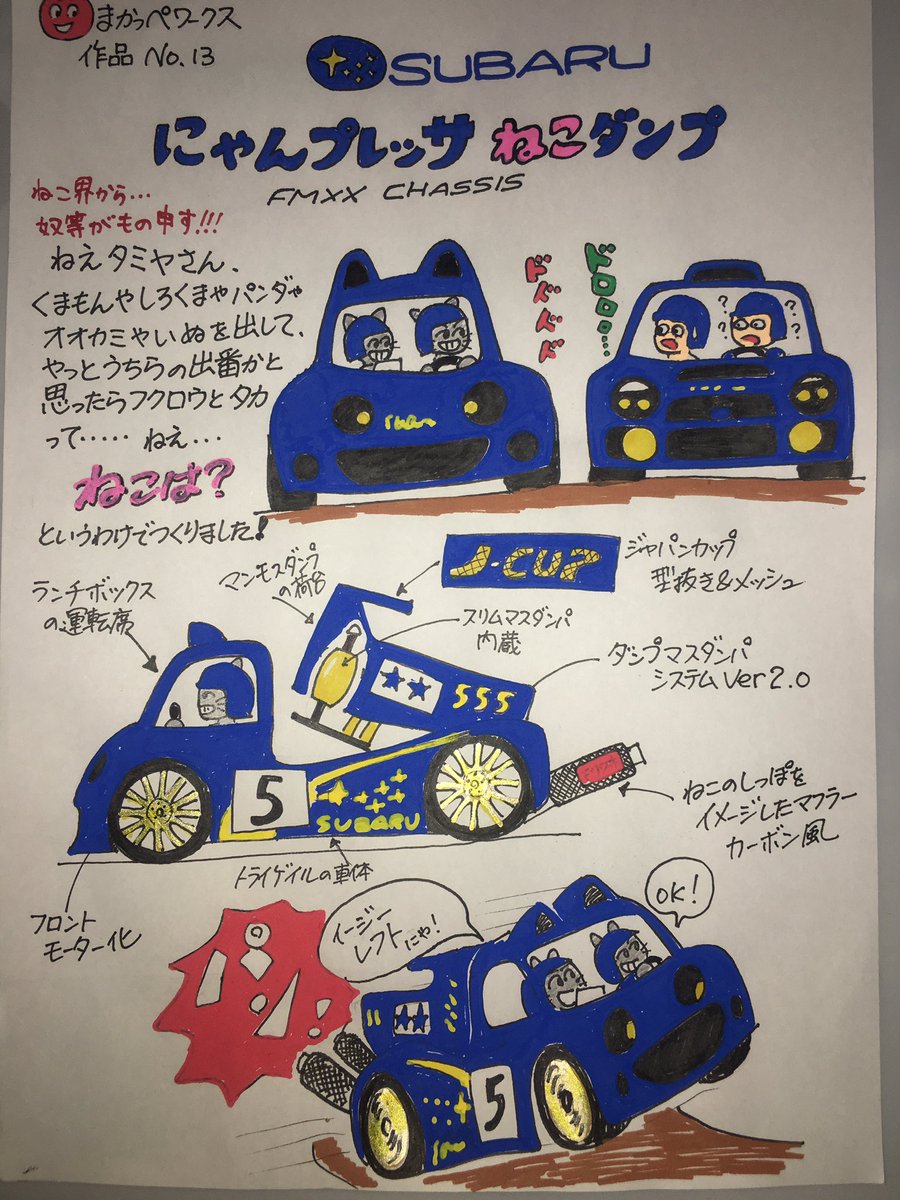 まかっぺワークス
作品 No.13
SUBARU
にゃんプレッサ ねこダンプ
FMXX CHASSIS
ねこ界から…
奴等がもの申す!!!
ねえタミヤさん、
くまもんやしろくまやパンダや
オオカミやいぬを出して、
やっとうちらの出番かと
思ったらフクロウとタカ
って‥‥‥ ねえ…
ねこは?
というわけでつくりました!
ドドドド
ドロロロ…
? ? ? ? ? ?
J-CUP
ジャパンカップ
型抜き&メッシュ
ランチボックス
の運転席
マンモスダンプ
の荷台
スリムマスダンパ
内蔵
ダンプマスダンパ
システム Ver2.0
555
5
SUBARU
ねこのしっぽを
イメージしたマフラー
カーボン風
トライゲイルの車体
フロント
モーター化
パン!
イージー
レフトにゃ!
OK!
5